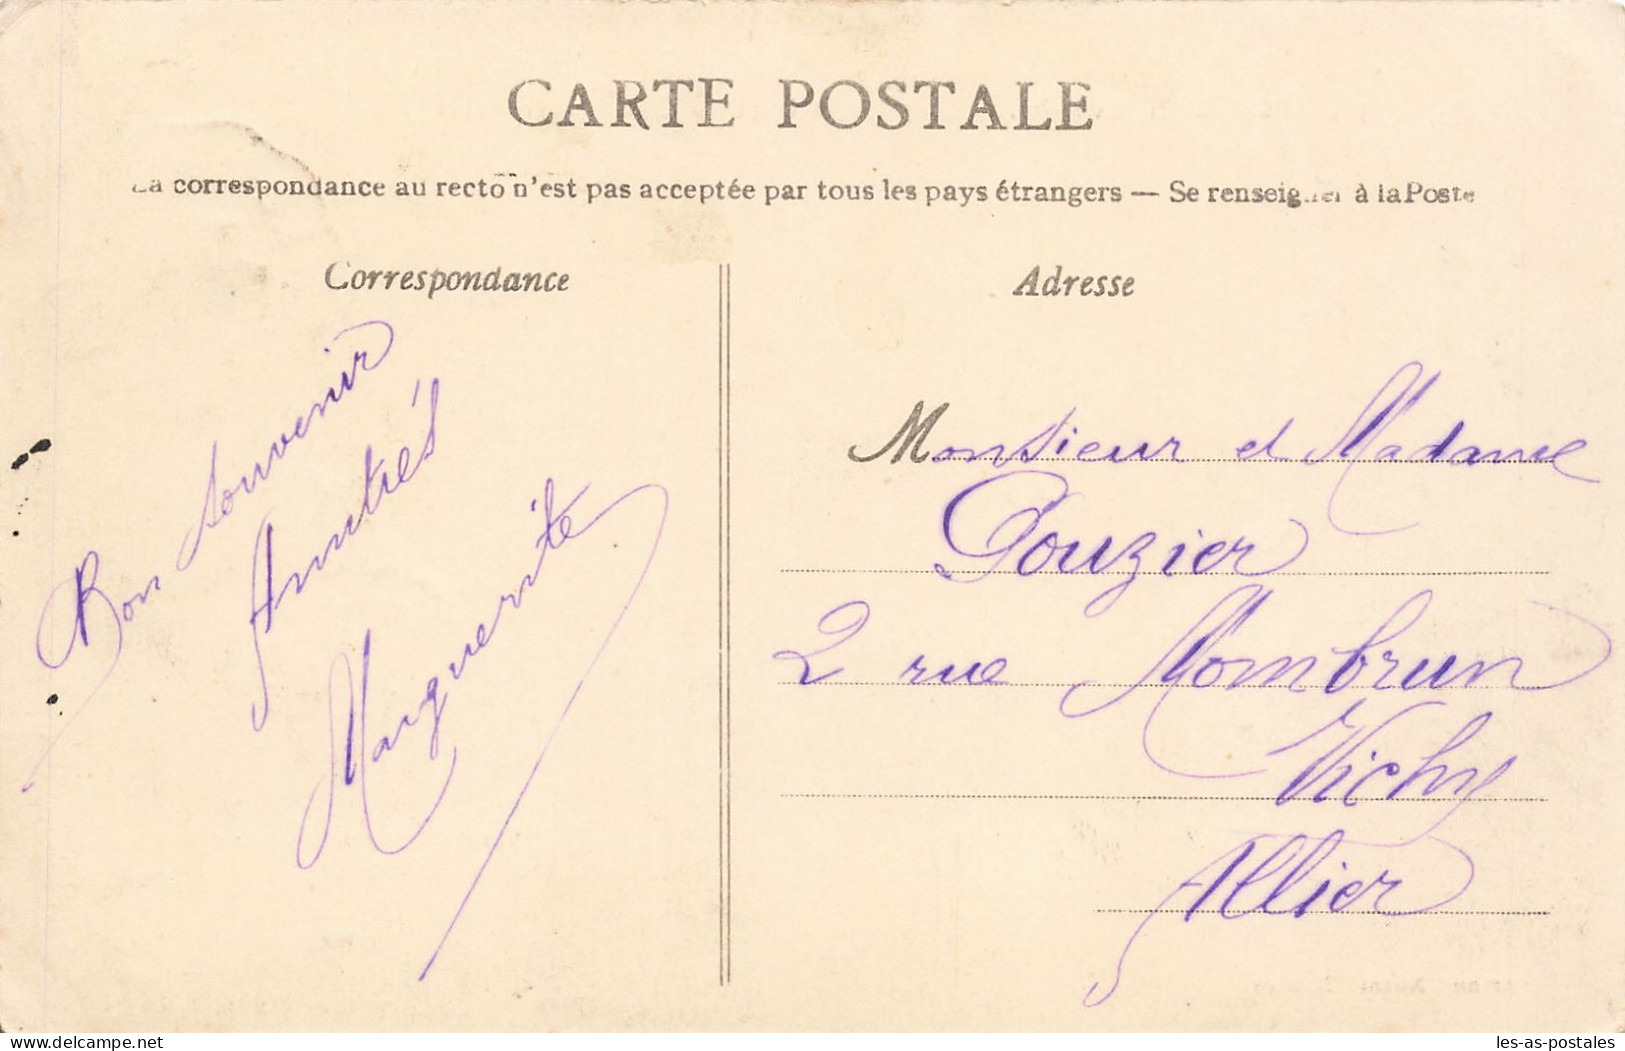 CARTE POSTALE
La correspondance au recto n'est pas acceptée par tous les pays étrangers — Se renseigner à la Poste
Correspondance
Bon souvenir
Amitiés
Marguerite
Adresse
Monsieur et Madame
Pouzier
2 rue Mombrun
Vichy
Allier
delcampe.net
les-as-postales